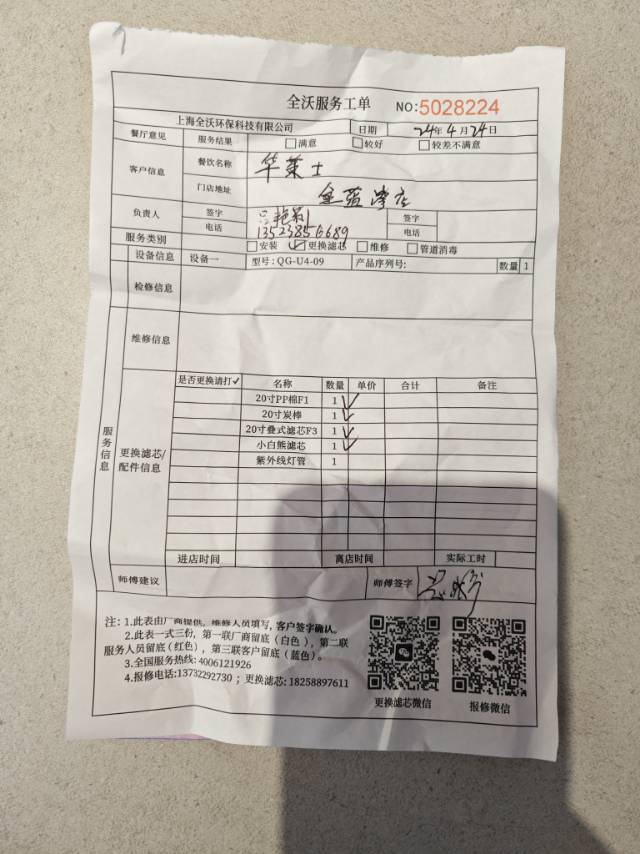 全沃服务工单 NO:5028224
上海全沃环保科技有限公司 日期 24年4月24日
餐厅意见 服务结果 □满意 □较好 □较差不满意
客户信息 餐饮名称 华莱士
门店地址 金蓝湾店
负责人 签字 签字
电话 13523856689 电话
服务类别 □安装 ☑更换滤芯 □维修 □管道消毒
设备信息 设备一 型号:QG-U4-09 产品序列号: 数量 1
检修信息
维修信息
服务信息
更换滤芯/配件信息
是否更换请打✓ 名称 数量 单价 合计 备注
20寸PP棉F1 1 ✓
20寸炭棒 1 ✓
20寸叠式滤芯F3 1 ✓
小白熊滤芯 1 ✓
紫外线灯管 1
进店时间 离店时间 实际工时
师傅建议 师傅签字
注: 1.此表由厂商提供, 维修人员填写, 客户签字确认。
2.此表一式三份, 第一联厂商留底(白色), 第二联
服务人员留底(红色), 第三联客户留底(蓝色)。
3.全国服务热线: 4006121926
4.报修电话:13732292730 ; 更换滤芯: 18258897611
更换滤芯微信 报修微信